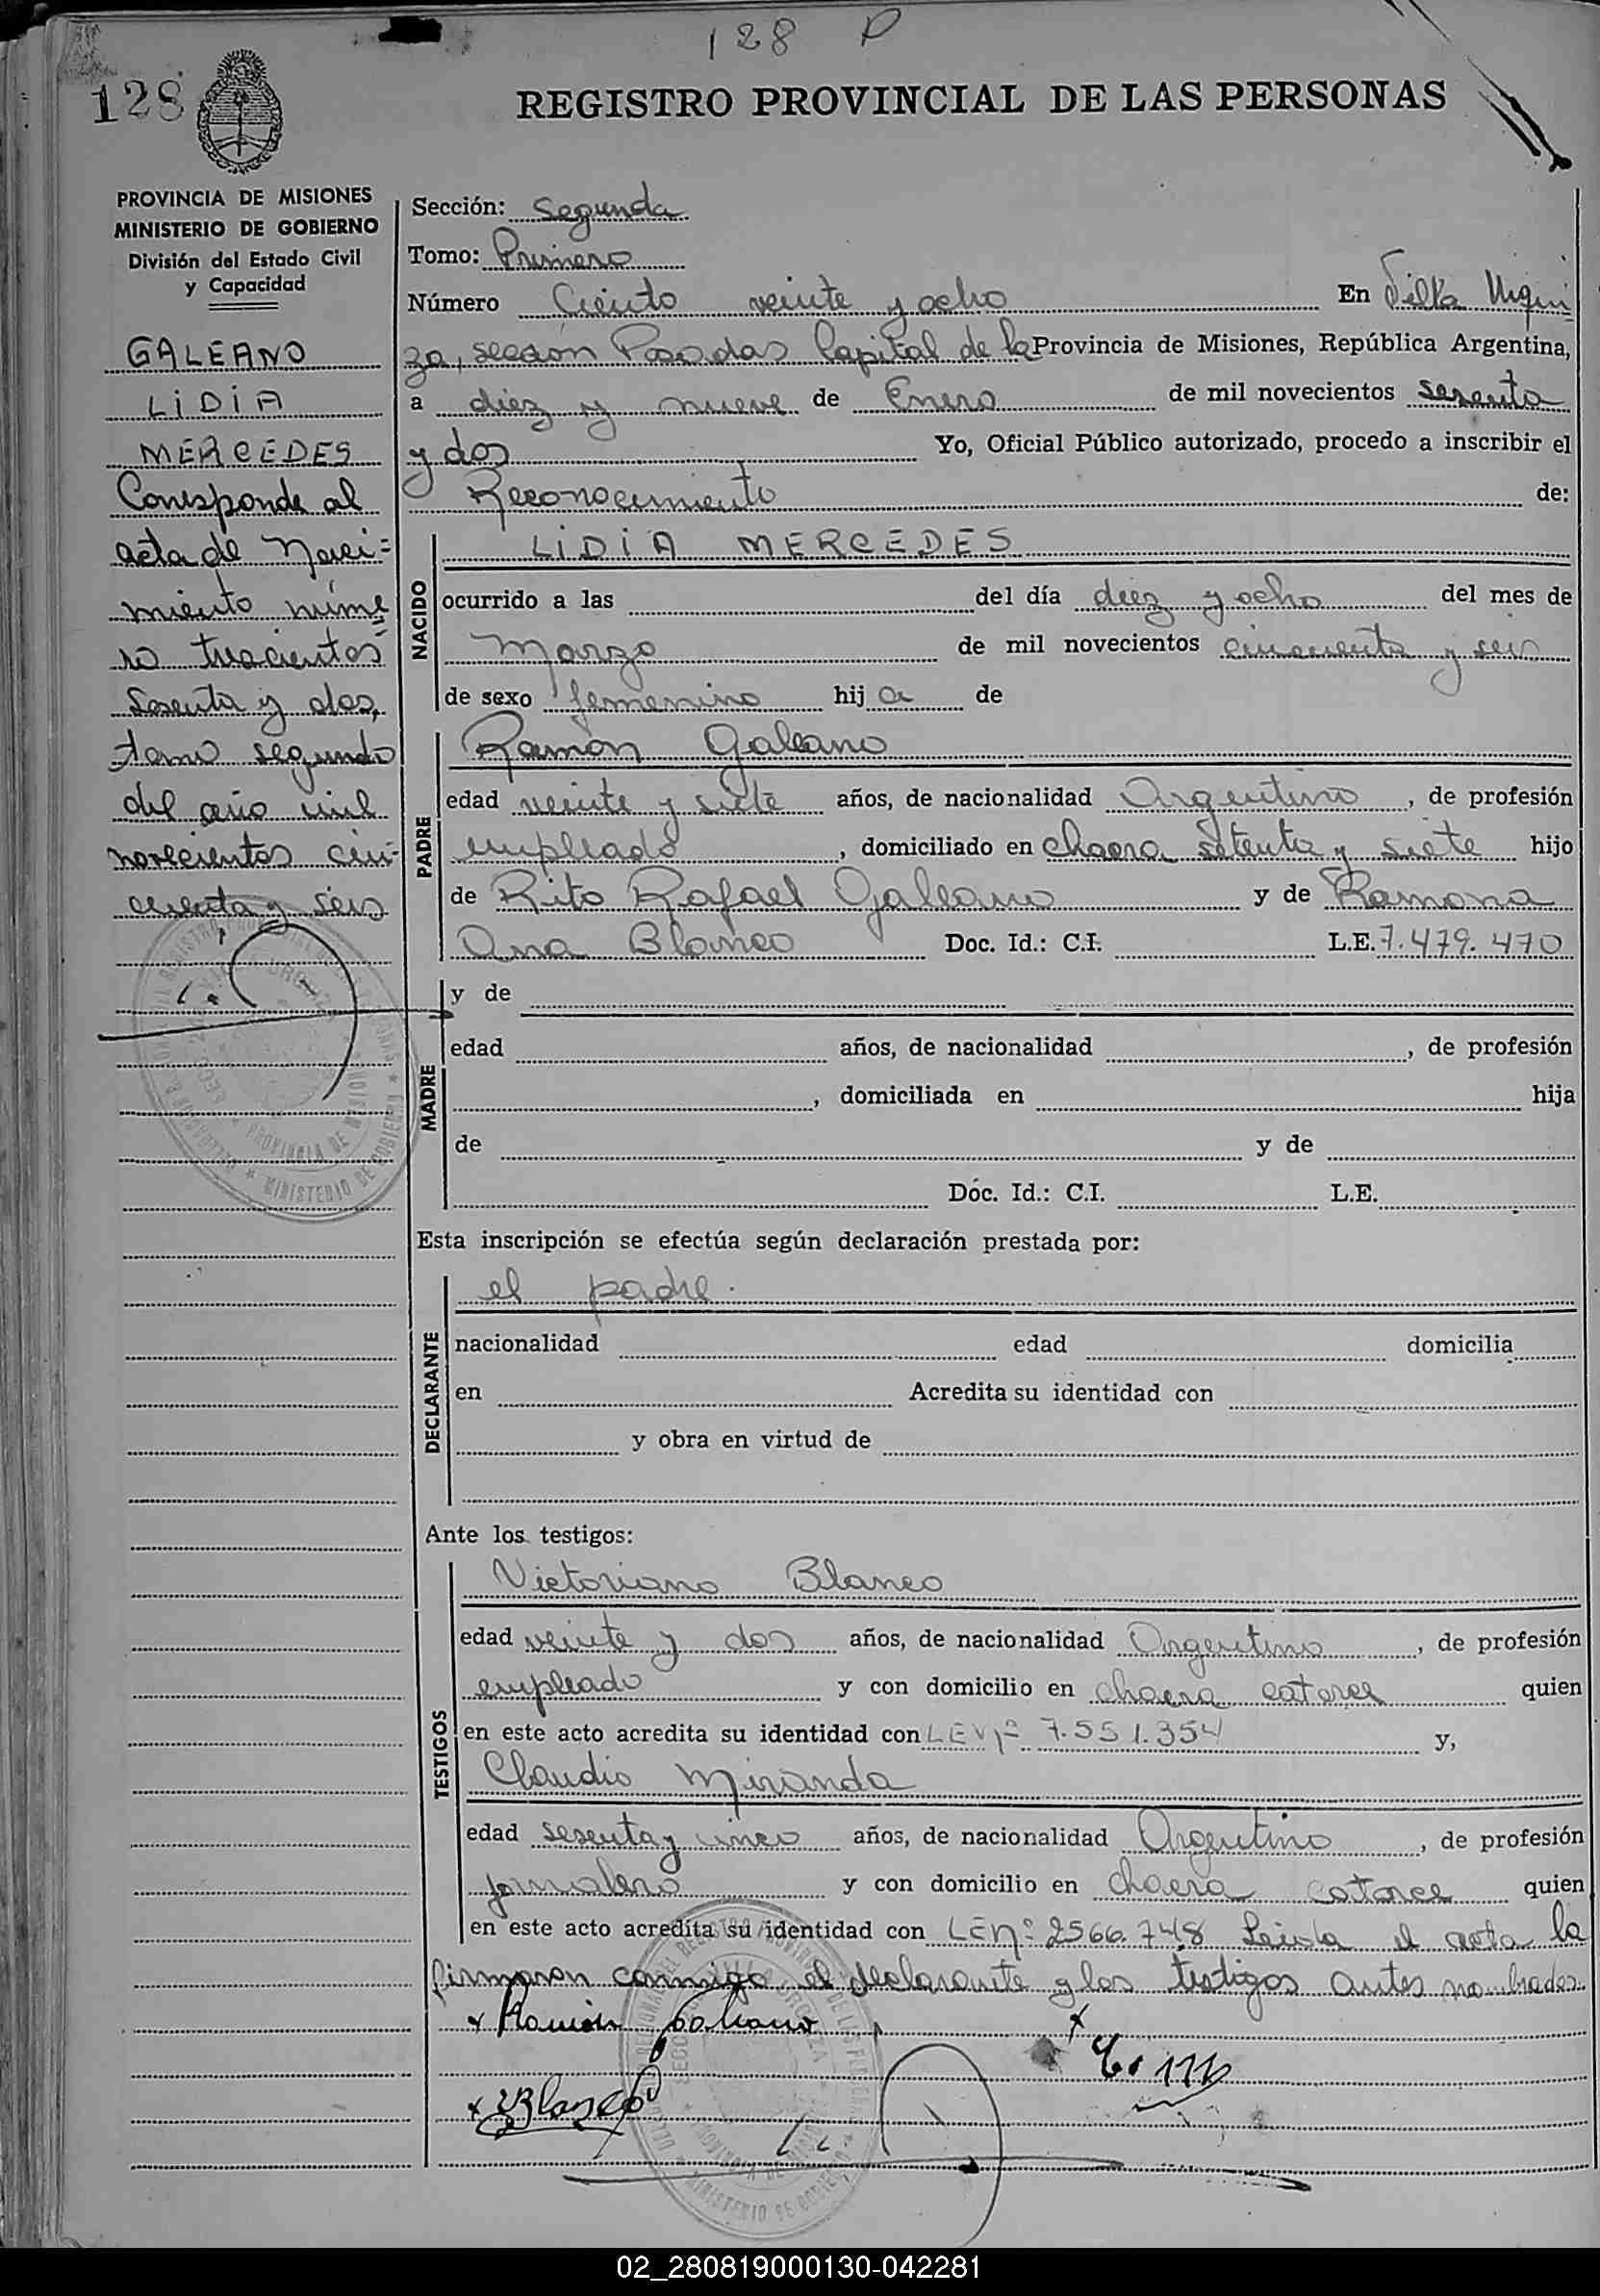 128 P
128
REGISTRO PROVINCIAL DE LAS PERSONAS
PROVINCIA DE MISIONES
MINISTERIO DE GOBIERNO
División del Estado Civil
y Capacidad
GALEANO
LIDIA
MERCEDES
Corresponde al
acta de Naci=
miento núme
ro trecientos
sesenta y dos,
tomo segundo
del año mil
novecientos cin-
cuenta y seis
Sección: Segunda
Tomo: Primero
Número Ciento veinte y ocho En Villa Urqui
za, sección Posadas Capital de la Provincia de Misiones, República Argentina,
a diez y nueve de Enero de mil novecientos sesenta
y dos Yo, Oficial Público autorizado, procedo a inscribir el
Reconocimiento de:
NACIDO
LIDIA MERCEDES
ocurrido a las del día diez y ocho del mes de
Marzo de mil novecientos cincuenta y seis
de sexo femenino hij a de
PADRE
Ramón Galeano
edad veinte y siete años, de nacionalidad Argentino, de profesión
empleado, domiciliado en chacra setenta y siete hijo
de Rito Rafael Galeano y de Ramona
Ana Blanco Doc. Id.: C.I. L.E. 7.479.470
MADRE
y de
edad años, de nacionalidad , de profesión
, domiciliada en hija
de y de
Doc. Id.: C.I. L.E.
Esta inscripción se efectúa según declaración prestada por:
DECLARANTE
el padre.
nacionalidad edad domicilia
en Acredita su identidad con
y obra en virtud de
Ante los testigos:
TESTIGOS
Victoriano Blanco
edad veinte y dos años, de nacionalidad Argentino, de profesión
empleado y con domicilio en chacra catorce quien
en este acto acredita su identidad con LE Nº 7.551.354 y,
Claudio Miranda
edad sesenta y cinco años, de nacionalidad Argentino, de profesión
jornalero y con domicilio en chacra catorce quien
en este acto acredita su identidad con LE nº 2566.748 Leida el acta la
firmaron conmigo el declarante y los testigos antes nombrados.
Ramón Galeano
VBlanco
C. M
02_280819000130-042281